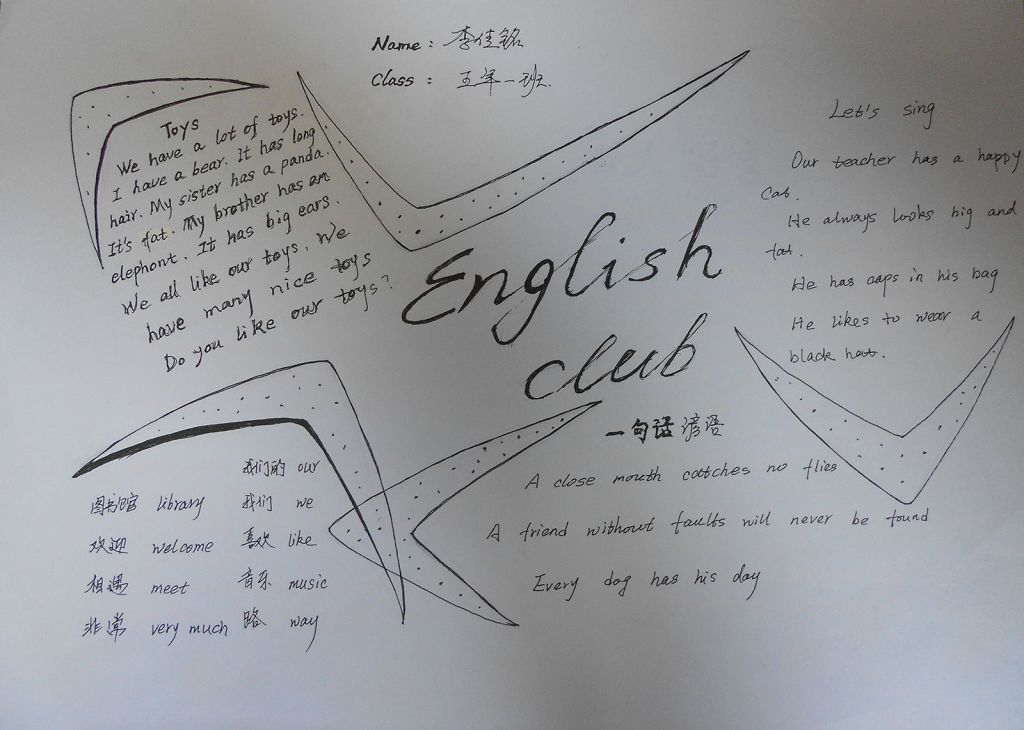 Name: 李佳铭
Class: 五年一班.
Toys
We have a lot of toys.
I have a bear. It has long
hair. My sister has a panda.
It's fat. My brother has an
elephont. It has big ears.
We all like our toys. We
have many nice toys
Do you like our toys?
English
club
Let's sing
Our teacher has a happy
Cat.
He always looks big and
fat.
He has caps in his bag
He likes to wear a
black hat.
一句话谚语
A close mouth catches no flies
A friend without faults will never be found
Every dog has his day
我们的 our
图书馆 library 我们 we
欢迎 welcome 喜欢 like
相遇 meet 音乐 music
非常 very much 路 way